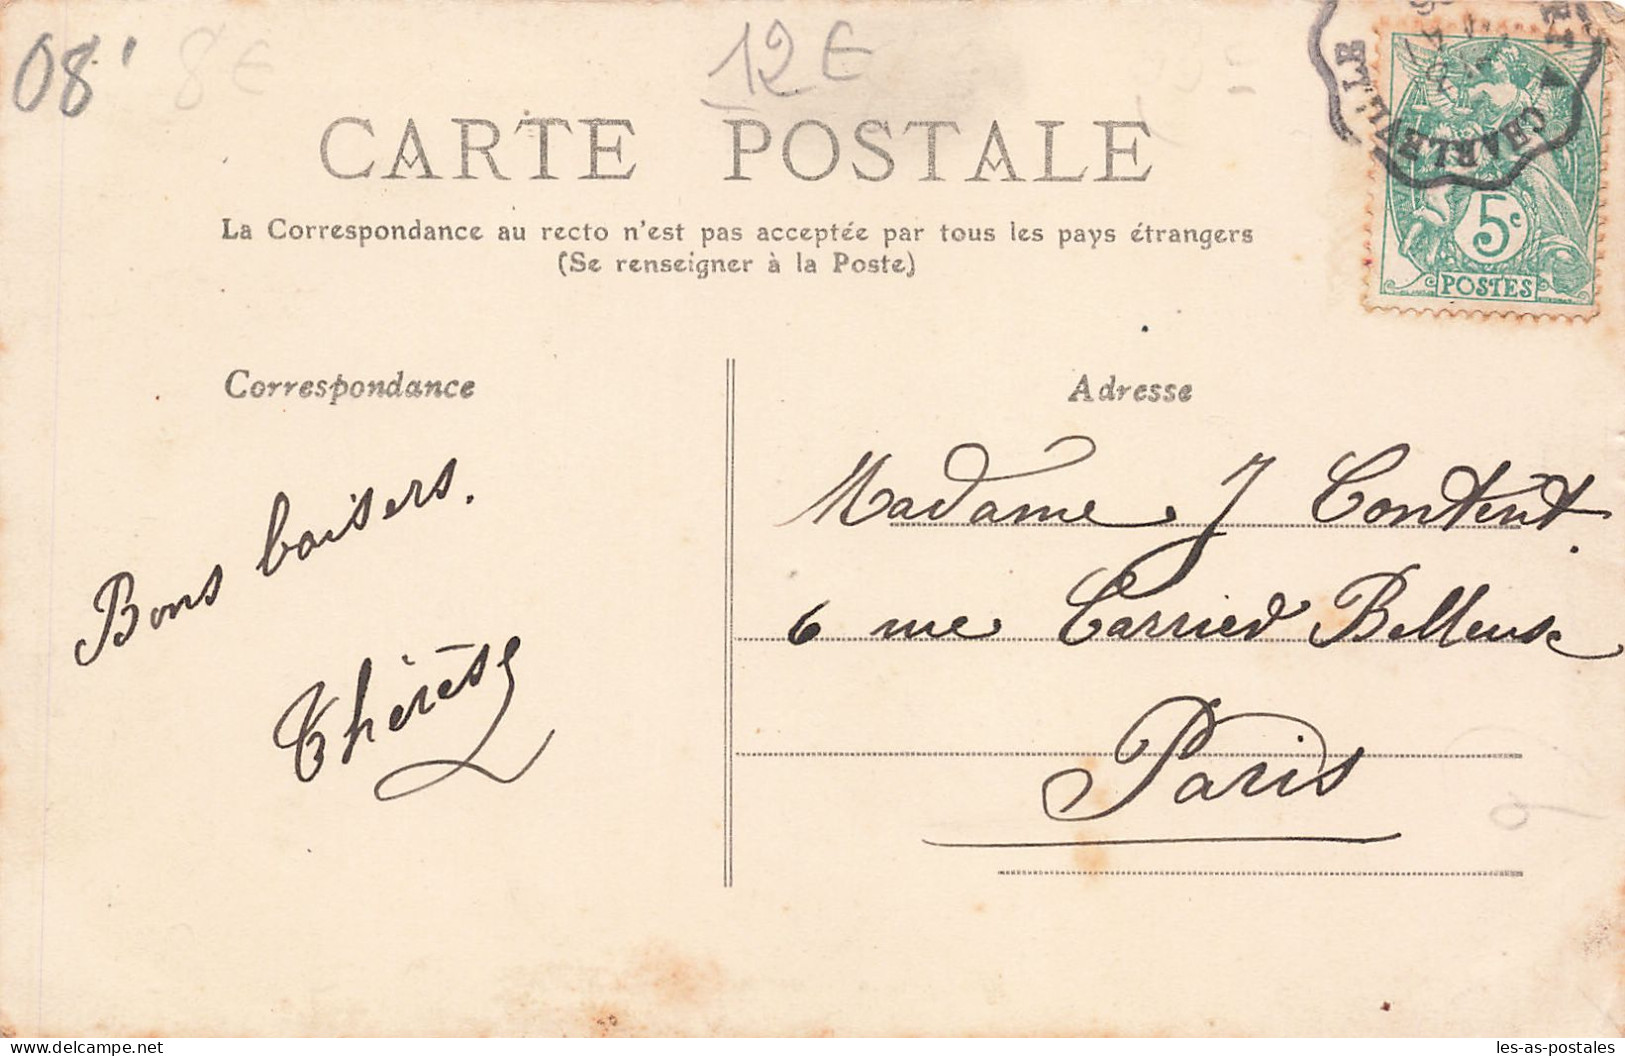 08'
8€
12€
CARTE POSTALE
La Correspondance au recto n'est pas acceptée par tous les pays étrangers
(Se renseigner à la Poste)
A CHARLEVILLE
5c
POSTES
Correspondance
Adresse
Bons baisers.
Thérèse
Madame J Content.
6 rue Carrier Belleuse
Paris
les-as-postales